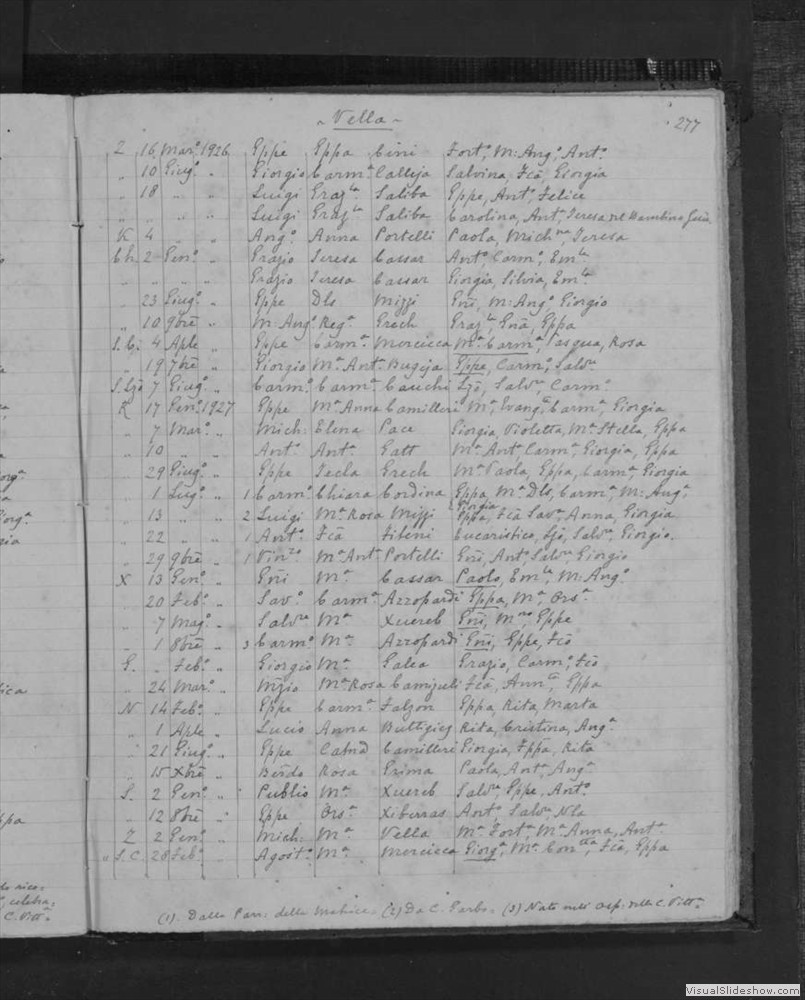 „ Vella „
277
Z 16 Mar.º 1926 Eppe Eppa Cini Fortª, M: Angª, Antª
„ 10 Giug.º „ Giorgio Carmª Calleja Salvina, Fcã, Giorgia
„ 18 „ „ Luigi Grazˡᵃ Saliba Eppe, Antº, Felice
„ „ „ „ Luigi Grazˡᵃ Saliba Carolina, Antª Teresa
K 4 „ „ Angº Anna Portelli Paola, Michⁿᵃ, Teresa
Ch 2 Genº „ Grazio Teresa Cassar Antª Carmª, Emˡᵃ
„ „ „ „ Grazio Teresa Cassar Giorgia, Silvia, Emˡᵃ
„ 23 Giug.º „ Eppe Dls Mizzi Gñi, M: Angº Giorgio
„ 10 9brẽ „ M: Angº Regª Grech Grazˡᵃ Gñã, Eppa
S.C. 4 Aple „ Eppe Carmª Mercieca Mª Carmª, Pasqua, Rosa
„ 19 7brẽ „ Giorgio Mª Antª Bugeja Eppe, Carmº, Salvʳᵉ
S.Lzo 7 Giugº „ Carmº Carmª Cauchi Lzõ, Salvʳᵉ, Carmº
R 17 Genº 1927 Eppe Mª Anna Camilleri Mª, Evangᵗᵃ Carmª, Giorgia
„ 7 Marº „ Mich: Elena Pace Giorgia, Violetta, Mª Stella, Eppa
„ 10 „ „ Antº Antª Gatt Mª Antª Carmª Giorgia, Eppa
„ 29 Giugº „ Eppe Tecla Grech Mª Paola, Eppa, Carmª, Giorgia
„ 1 Lugº „ 1 Carmº Chiara Cordina Eppa, Mª Dls, Carmª, M: Angª
„ 13 „ „ 2 Luigi Mª Rosa Mizzi Giorgia Eppa, Fcã Savª, Anna, Giorgia
„ 22 „ „ 1 Antº Fcã Tibeni Eucaristico, Lzõ, Salvʳᵉ, Giorgio
„ 29 9brẽ „ 1 Vinᶻº Mª Antª Portelli Gñi, Antº Salvʳᵉ Giorgio
X 13 Genº „ Gñi Mª Cassar Paolo, Emˡᵉ, M: Angº
„ 20 Febº „ Savº Carmª Azzopardi Eppa, Mª, Orsª
„ 7 Magº „ Salvʳᵉ Mª Xuereb Gñi, Mⁿº, Eppe
„ 1 8brẽ „ 3 Carmº Mª Azzopardi Gñi, Eppe, Fcõ
G. „ Febº „ Giorgio Mª Galea Grazio, Carmº, Fcõ
„ 24 Marº „ Mª Rosa Camzuli Fcã, Annᵗᵃ, Eppa
N 14 Febº „ Eppe Carmª Falzon Eppa, Rita, Marta
„ 1 Aple „ Lucio Anna Buttigieg Rita, Cristina, Angª
„ 21 Giugº „ Eppe Catnã Camilleri Giorgia, Eppa, Rita
„ 15 Xbrẽ „ Bẽrdo Rosa Grima Paola, Antª, Angª
S. 2 Genº „ Publio Mª Xuereb Salvʳᵉ Eppe, Antº
„ 12 8brẽ „ Eppe Orsª Xiberras Antº Salvʳᵉ Nla
Z 2 Genº „ Mich: Mª Vella Mª Fortª, Mª Anna, Antª
„ S.C. 28 Febº Agostº Mª Mercieca Giorgª, Mª Conᶜᵗᵗᵃ, Fcã, Eppa
(1). Dalla Parr: della Matrice. (2) Da C. Parbs. (3) Nato nell' Osp. della C. Vittª
VisualSlideshow.com